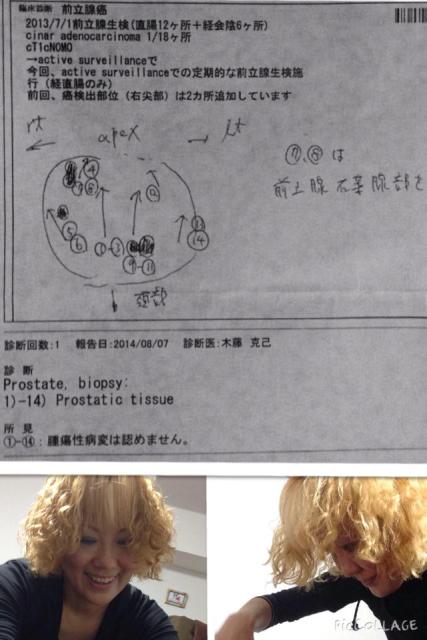 臨床診断 前立腺癌
2013/7/1前立腺生検(直腸12ヶ所+経会陰6ヶ所)
cinar adenocarcinoma 1/18ヶ所
cT1cN0M0
→active surveillanceで
今回、active surveillanceでの定期的な前立腺生検施
行(経直腸のみ)
前回、癌検出部位(右尖部)は2カ所追加しています
rt apex → lt
⑦、⑧は
前立腺右葉腺部を
④
⑦
⑧
⑫
⑤
⑥
①-③
⑨-⑪
⑬
⑭
診断回数:1 報告日:2014/08/07 診断医:木藤 克己
診 断
Prostate, biopsy:
1)-14) Prostatic tissue
所 見
①-⑭:腫瘍性病変は認めません。
PIC COLLAGE